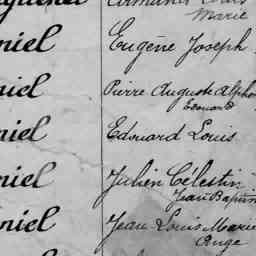 Marie
niel Eugène Joseph
niel Pierre Auguste Alpho
Edouard
niel Edouard Louis
niel Julien Célestin
Jean Baptis
niel Jean Louis Marie
Ange